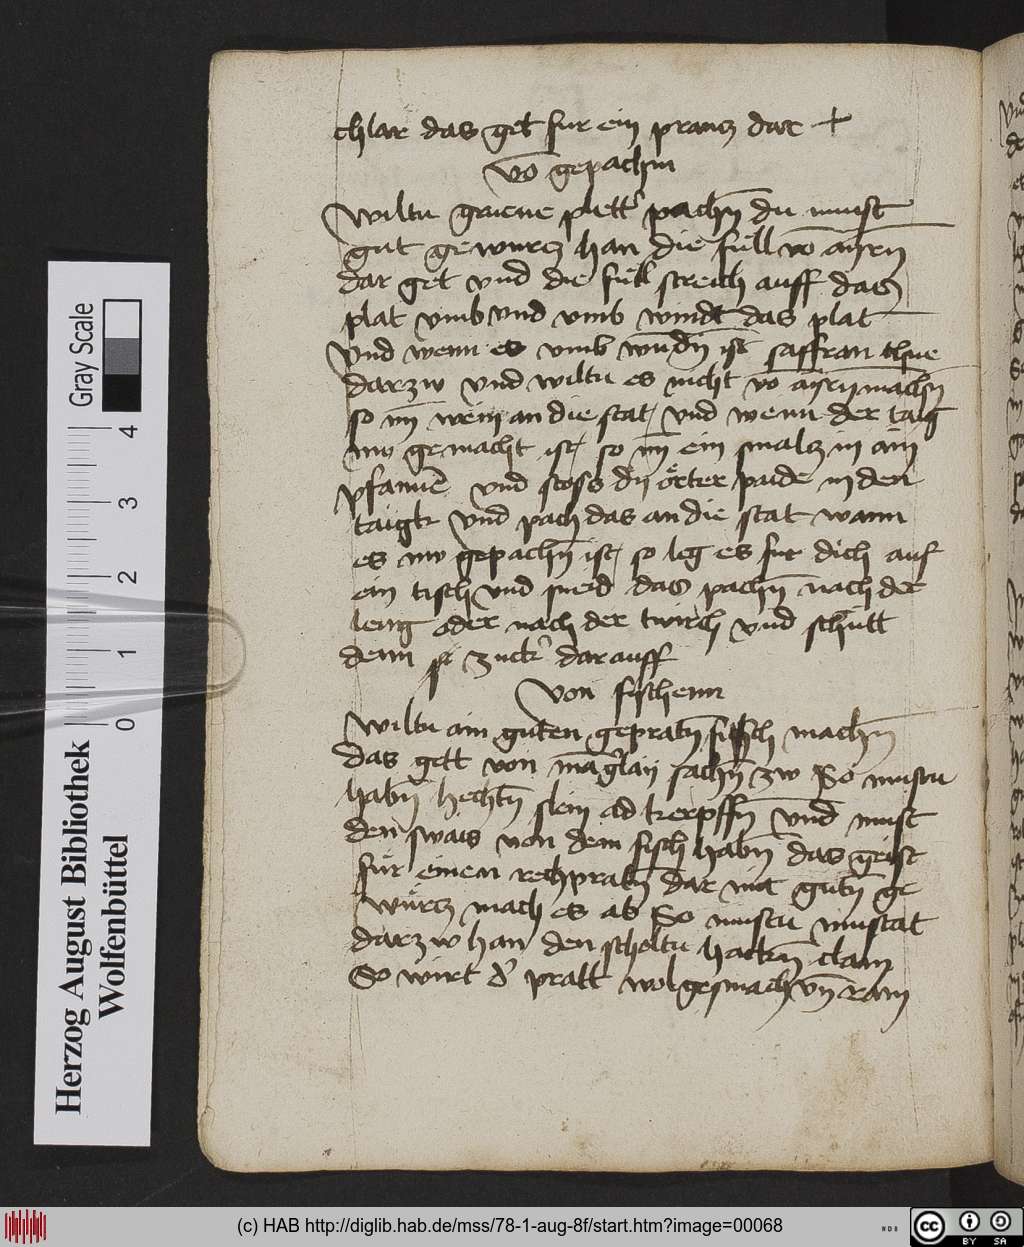 chlar das get fur ein prantz dar +
vō gepachm
Wiltu gruene plett' pachn̄ du must
gut gewurtz han die fùll vō ayrn̄
dar get vnd die fùll streich auff das
plat vmb vnd vmb windt das plat
Vnd wenn es vmb wūdn̄ ist saffran thue
darzw vnd wiltu es nicht vō ayrn machn̄
so nÿm wein an die stat / vnd wenn der taig
nw gemacht ist / so nȳm ein smaltz in ain
pfannē vnd stoss dÿ örter paide in den
taigk vnd pach das an die stat wann
es nw gepachn̄ ist / so leg es fur dich auf
ein tisch vnd sneid das pachn̄ nach der
leng oder nach der twirch vnd schùtt
denn zuck' darauff
Von fischenn
Wiltu ain guten gepratn̄ fisch machn̄
das gett von māg'laÿ sachn̄ zw So mustu
habn̄ hechtn̄ slein ad kerpffn̄ vnd must
den swais von dem fisch habn̄ das geist
fùr einen rechpratn̄ dar mit gutn̄ ge
wùrtz mach es ab So mustu mustat
darzw han den scholtu hackn̄ clain
So wirt d' pratt wolgesmach vn̄ rain
Gray Scale
0 1 2 3 4
Herzog August Bibliothek
Wolfenbüttel
(c) HAB http://diglib.hab.de/mss/78-1-aug-8f/start.htm?image=00068
WDB
cc
BY SA